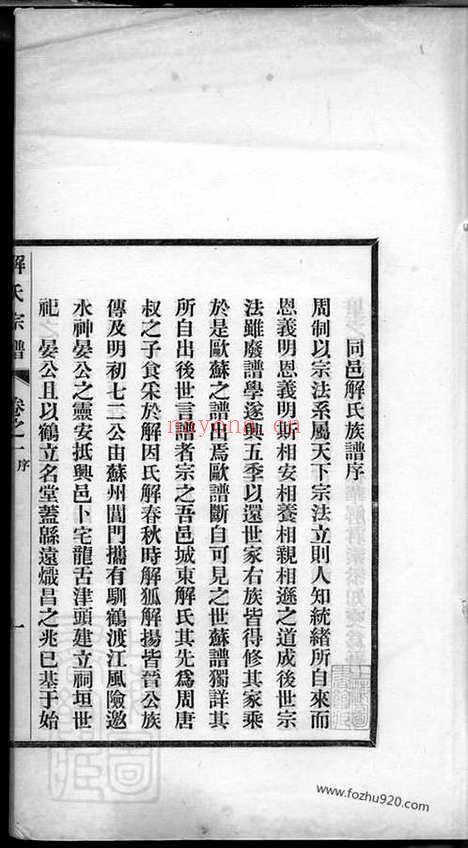 同邑解氏族譜序
周制以宗法系屬天下宗法立則人知統緒所自來而
恩義明恩義明斯相安相養相親相遜之道成後世宗
法雖廢譜學遂興五季以還世家右族皆得修其家乘
於是歐蘇之譜出焉歐譜斷自可見之世蘇譜獨詳其
所自出後世言譜者宗之吾邑城東解氏其先為周唐
叔之子食采於解因氏解春秋時解狐解揚皆晉公族
傳及明初七二公由蘇州閶門攜有馴鶴渡江風險邀
水神晏公之靈安抵興邑卜宅龍舌津頭建立祠垣世
祀 晏公且以鶴立名堂蓋緜遠熾昌之兆已基于始
解氏宗譜 卷之一 序 一
nmyona.cn
www.fozhu920.com